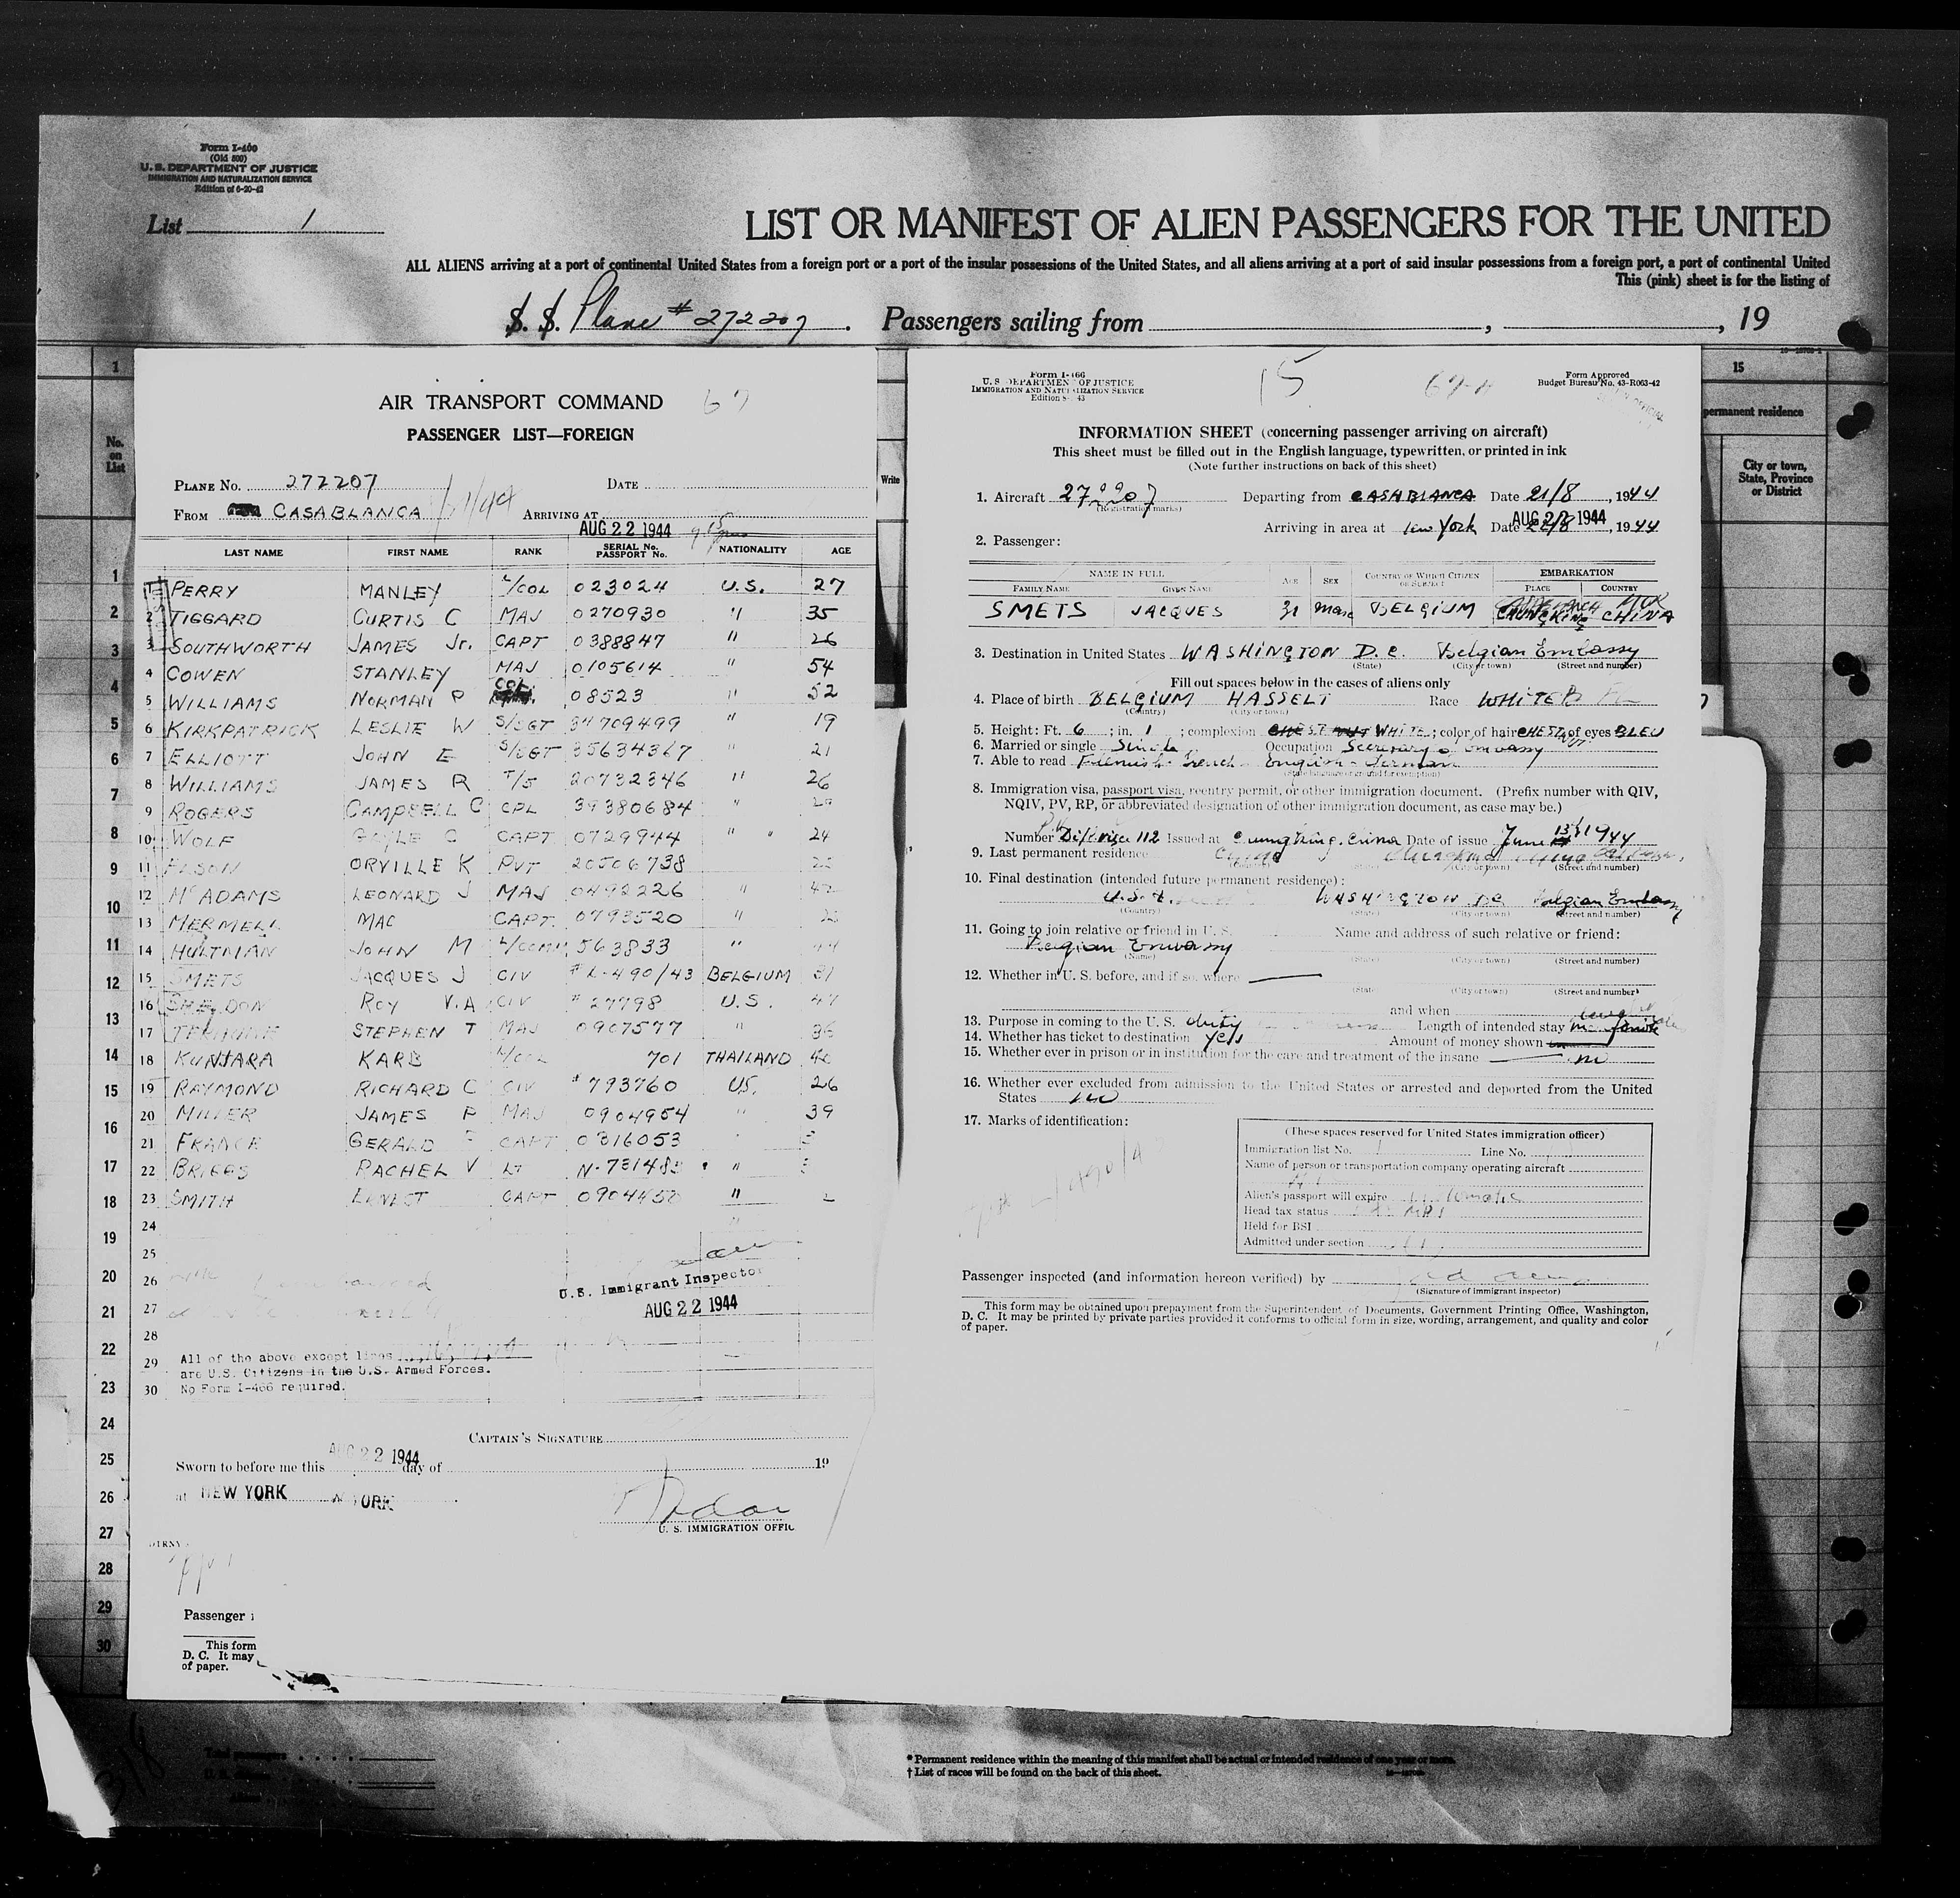 Form I-400
(Old 500)
U. S. DEPARTMENT OF JUSTICE
IMMIGRATION AND NATURALIZATION SERVICE
Edition of 6-20-42
List 1
LIST OR MANIFEST OF ALIEN PASSENGERS FOR THE UNITED
ALL ALIENS arriving at a port of continental United States from a foreign port or a port of the insular possessions of the United States, and all aliens arriving at a port of said insular possessions from a foreign port, a port of continental United
This (pink) sheet is for the listing of
S. S. Plane # 272207. Passengers sailing from , , 19
1
No. on List
1
2
3
4
5
6
7
8
9
10
11
12
13
14
15
16
17
18
19
20
21
22
23
24
25
26
27
28
29
30
AIR TRANSPORT COMMAND 67
PASSENGER LIST—FOREIGN
PLANE No. 272207 DATE
FROM CASABLANCA ARRIVING AT
AUG 22 1944
LAST NAME FIRST NAME RANK SERIAL No. PASSPORT No. NATIONALITY AGE
1 PERRY MANLEY L/COL 023024 U.S. 27
2 TIGGARD CURTIS C MAJ 0270930 " 35
3 SOUTHWORTH JAMES Jr. CAPT 0388847 " 26
4 COWEN STANLEY MAJ 0105614 " 54
5 WILLIAMS NORMAN P COL. 08523 " 52
6 KIRKPATRICK LESLIE W S/SGT 34709499 " 19
7 ELLIOTT JOHN E S/SGT 35634367 " 21
8 WILLIAMS JAMES R T/5 20732346 " 26
9 ROGERS CAMPBELL C CPL 39380684 " 29
10 WOLF C CAPT 0729944 " " 24
11 ORVILLE K PVT 20506738
12 McADAMS LEONARD J MAJ 0492226 " 42
13 MERMELL MAC CAPT. 0793520 "
14 HULTMAN JOHN M L/COMM 563833 " 44
15 SMETS JACQUES J CIV # L-490/43 BELGIUM 31
16 SHELDON ROY V.A CIV # 27798 U.S. 47
17 STEPHEN T MAJ 0907577 " 36
18 KUNJARA KARB L/COL 701 THAILAND 40
19 RAYMOND RICHARD C CIV # 793760 U.S. 26
20 MILLER JAMES P MAJ 0904954 " 39
21 FRANCE GERALD F CAPT 0316053
22 BRIGGS RACHEL V LT N-73148 "
23 SMITH ERNEST CAPT 0904450 "
24
25
26
27
28
U.S. Immigrant Inspector
AUG 22 1944
29 All of the above except lines
are U.S. Citizens in the U.S. Armed Forces.
30 No Form I-466 required.
CAPTAIN'S SIGNATURE
AUG 22 1944
Sworn to before me this day of 19
at NEW YORK N YORK
U. S. IMMIGRATION OFFIC
Passenger i
This form
D. C. It may
of paper.
Write
Form I-466
U. S. DEPARTMENT OF JUSTICE
IMMIGRATION AND NATURALIZATION SERVICE
Edition 8- 43
15
67-A
Form Approved
Budget Bureau No. 43-R063-42
INFORMATION SHEET (concerning passenger arriving on aircraft)
This sheet must be filled out in the English language, typewritten, or printed in ink
(Note further instructions on back of this sheet)
1. Aircraft 272207 Departing from CASABLANCA Date 21/8, 1944
(Registration marks)
Arriving in area at New York Date 22/8, 1944
AUG 22 1944
2. Passenger:
NAME IN FULL AGE SEX COUNTRY OF WHICH CITIZEN OR SUBJECT EMBARKATION
FAMILY NAME GIVEN NAME PLACE COUNTRY
SMETS JACQUES 31 Masc BELGIUM CHUNGKING CHINA
3. Destination in United States WASHINGTON D.C. Belgian Embassy
(State) (City or town) (Street and number)
Fill out spaces below in the cases of aliens only
4. Place of birth BELGIUM HASSELT Race WHITE
(Country) (City or town)
5. Height: Ft. 6; in. 1; complexion WHITE; color of hair CHESTNUT of eyes BLEU
6. Married or single Single Occupation Secretary of Embassy
7. Able to read Flemish - French - English - German
(State language or ground for exemption)
8. Immigration visa, passport visa, reentry permit, or other immigration document. (Prefix number with QIV,
NQIV, PV, RP, or abbreviated designation of other immigration document, as case may be.)
Number 112 Issued at Chungking, China Date of issue June 13th 1944
9. Last permanent residence
(City or town) (Street and number)
10. Final destination (intended future permanent residence):
U.S.A. WASHINGTON DC Belgian Embassy
(Country) (State) (City or town) (Street and number)
11. Going to join relative or friend in U. S. Name and address of such relative or friend:
Belgian Embassy
(Name) (State) (City or town) (Street and number)
12. Whether in U. S. before, and if so, where
(State) (City or town) (Street and number)
and when
13. Purpose in coming to the U. S. duty Length of intended stay
14. Whether has ticket to destination yes Amount of money shown
15. Whether ever in prison or in institution for the care and treatment of the insane no
16. Whether ever excluded from admission to the United States or arrested and deported from the United
States no
17. Marks of identification:
(These spaces reserved for United States immigration officer)
Immigration list No. Line No.
Name of person or transportation company operating aircraft
Alien's passport will expire
Head tax status
Held for BSI
Admitted under section
Passenger inspected (and information hereon verified) by
(Signature of immigrant inspector)
This form may be obtained upon prepayment from the Superintendent of Documents, Government Printing Office, Washington,
D. C. It may be printed by private parties provided it conforms to official form in size, wording, arrangement, and quality and color
of paper.
15
permanent residence
City or town, State, Province or District
318
* Permanent residence within the meaning of this manifest shall be actual or intended residence of one year or more.
† List of races will be found on the back of this sheet.